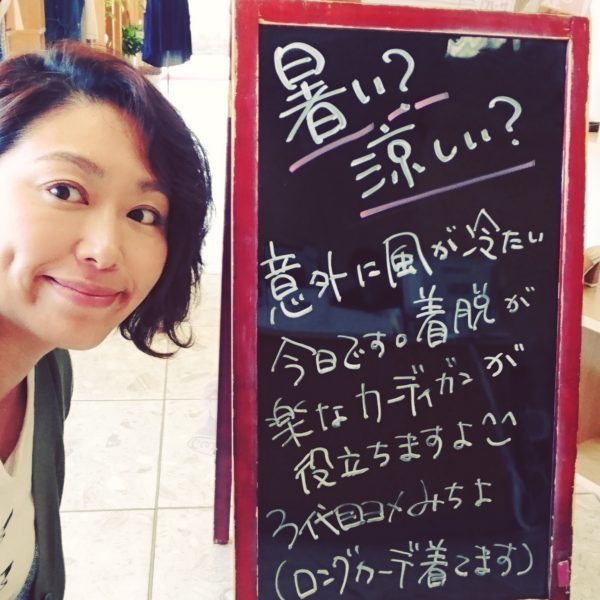 暑い?
涼しい?
意外に風が冷たい
今日です。着脱が
楽なカーディガンが
役立ちますよ
3代目ヨメみちよ
(ロングカーデ着てます)